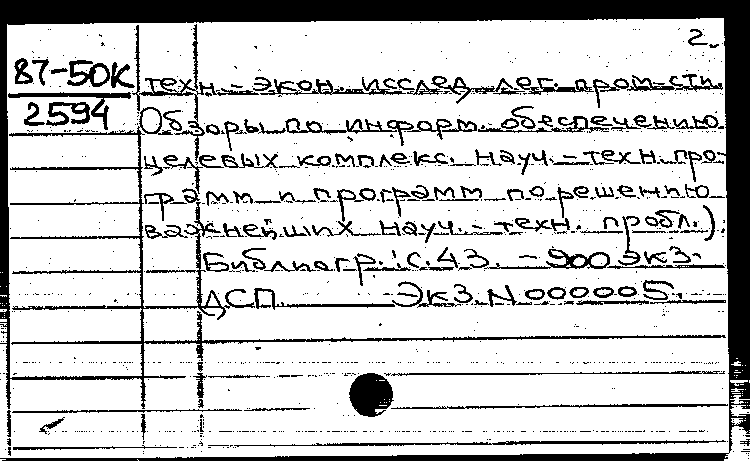 2.
87-50К
2594
техн.-экон. исслед. лег. пром-сти.
Обзоры по информ. обеспечению
целевых комплекс. науч.-техн. про-
грамм и программ по решению
важнейших науч.-техн. пробл.).
Библиогр.: с. 43. - 900 экз.
ДСП. Экз. N 000005.